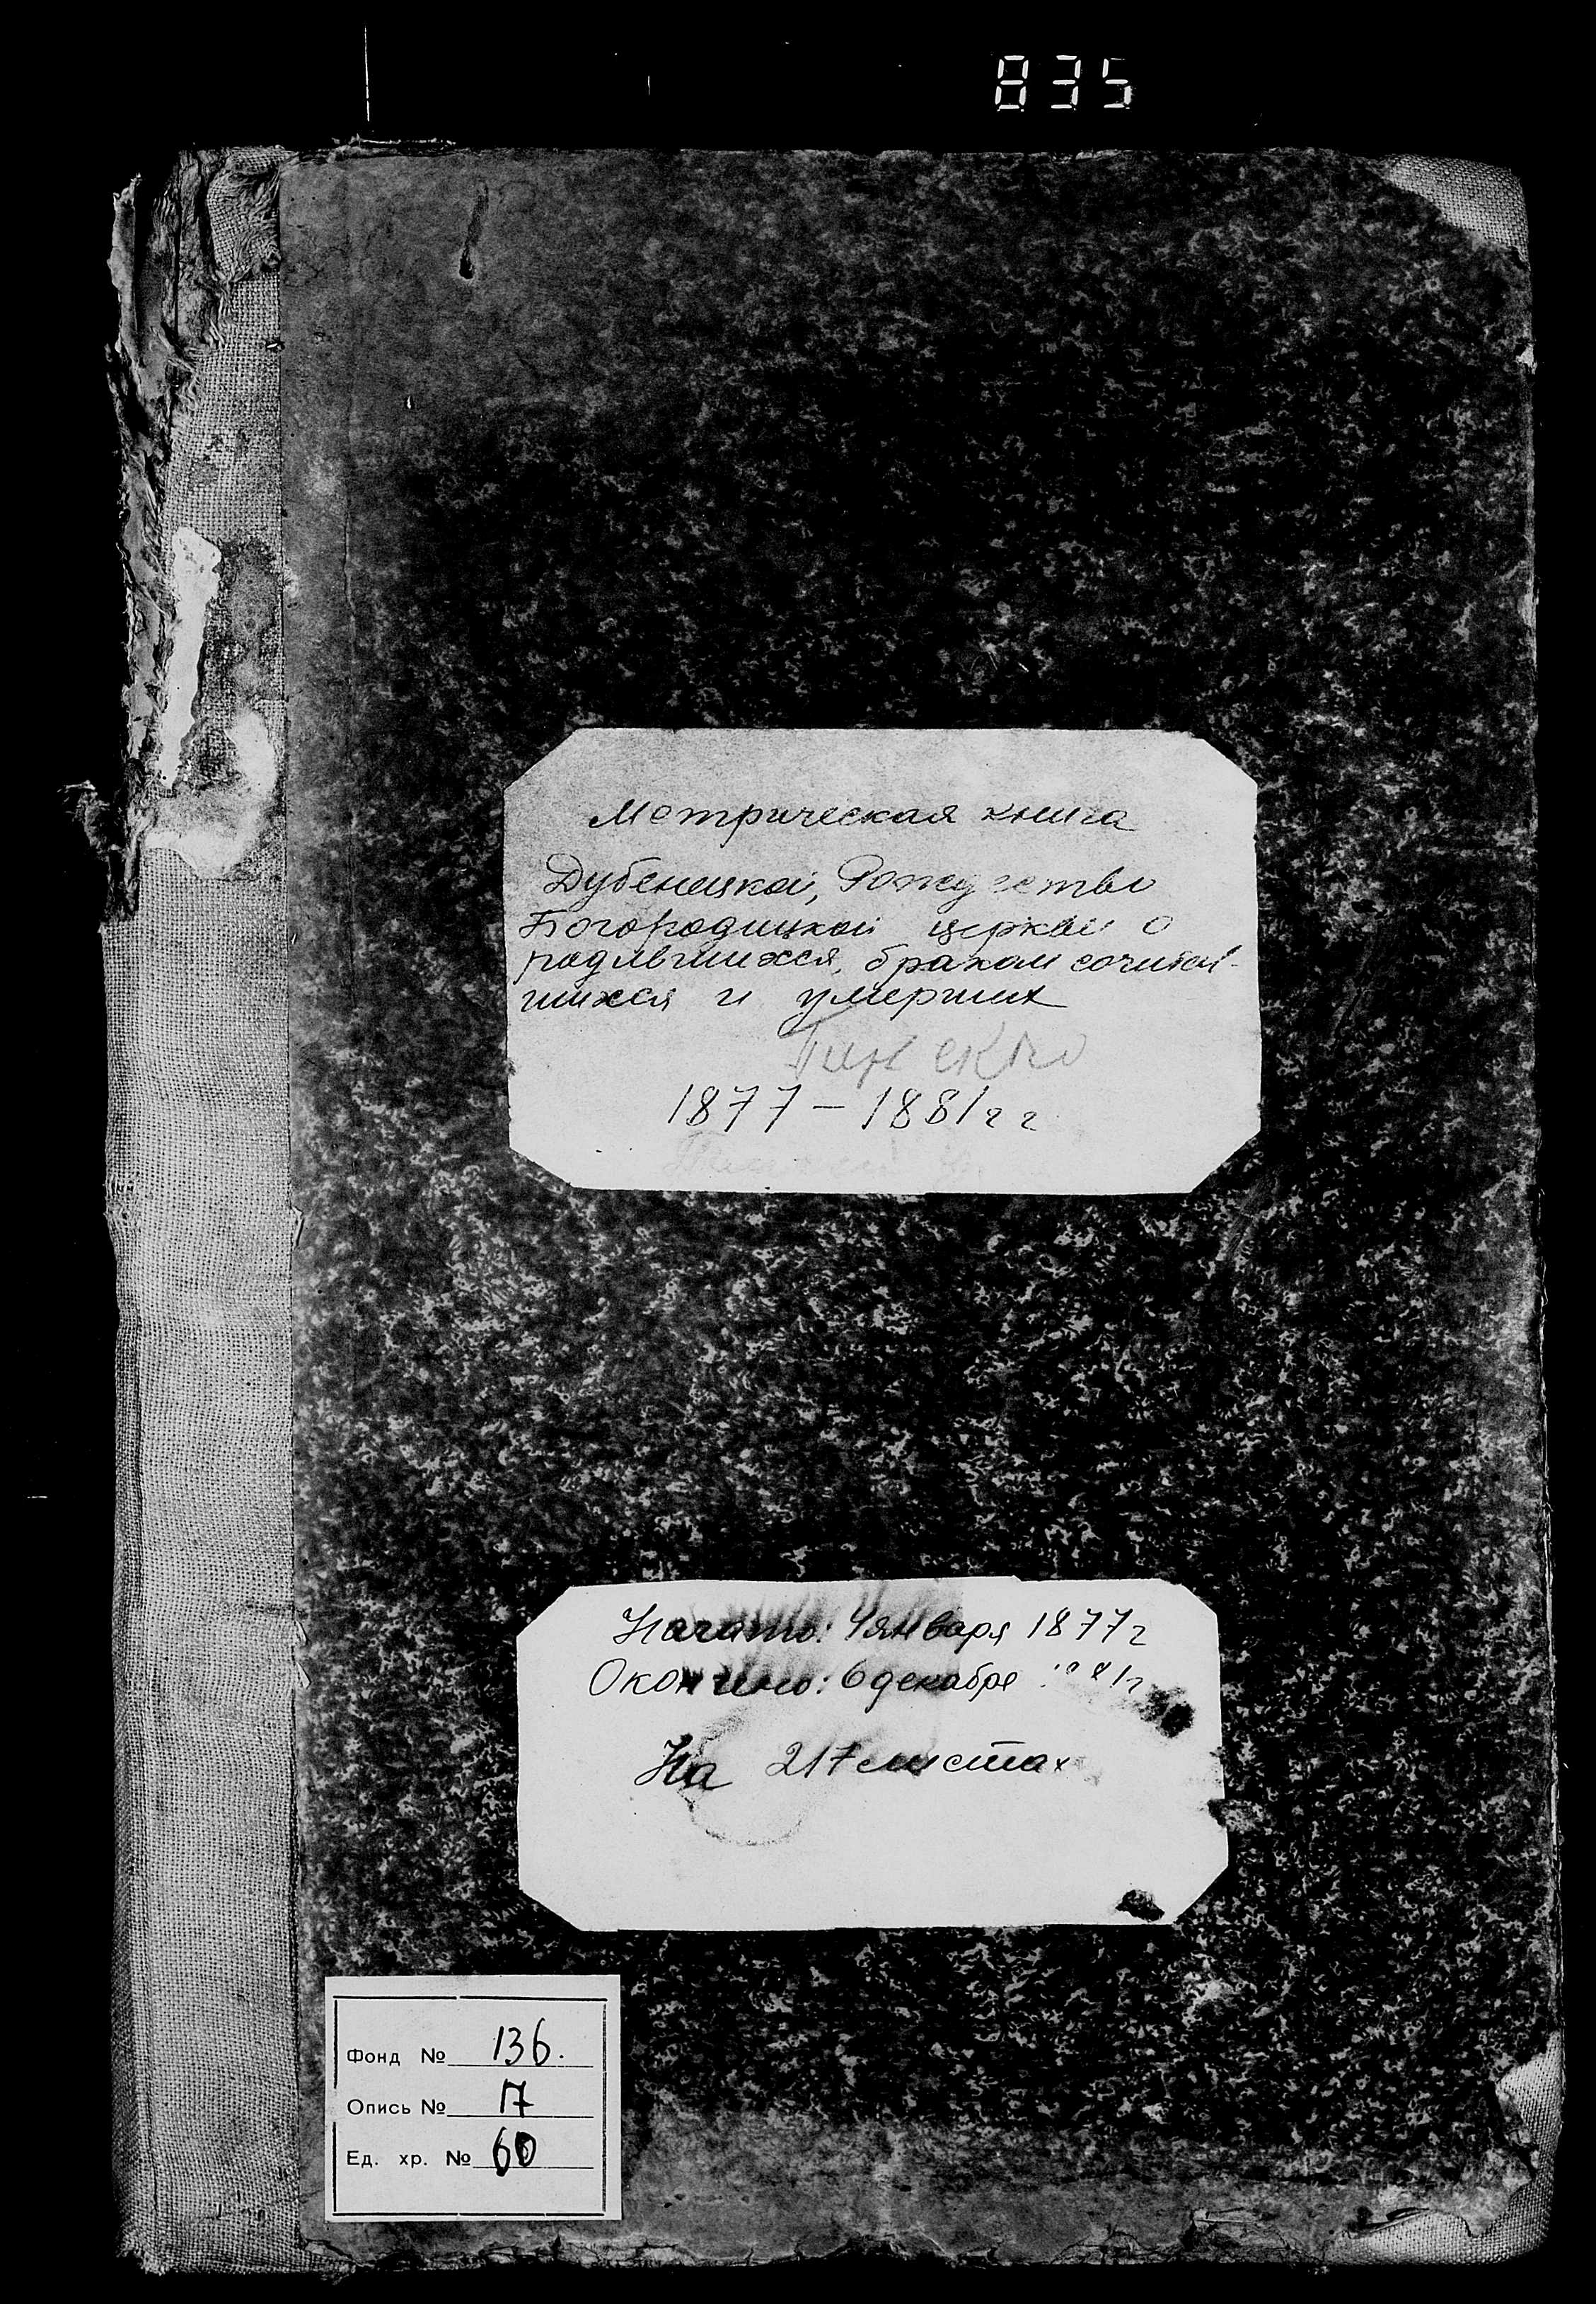 835
Метрическая книга
Дубенецкой, Рождество
Богородицкой церкви о
родившихся, браком сочитав-
шихся и умерших
1877 – 1881 г г
Начато: 4 января 1877 г
Окончено: 6 декабря
На 217 листах
Фонд № 136.
Опись № 17
Ед. хр. № 60